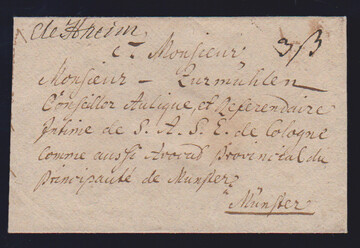 de Rheim
3/3
a Monsieur
Monsieur – Zurmühlen
Conseiller Aulique, et Referendaire
Intime de S. A. S. E. de Cologne
comme aussi Avocad provincial du
principauté de Munster
a Münster